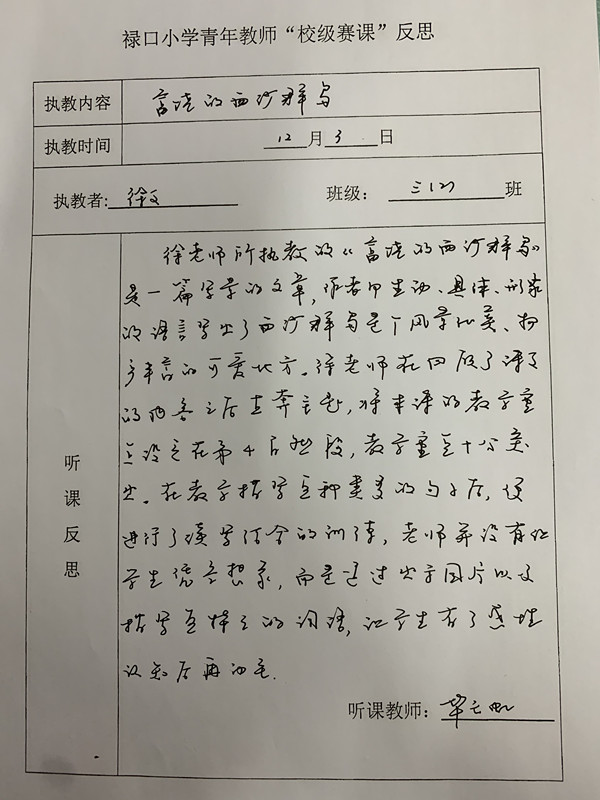 禄口小学青年教师“校级赛课”反思
执教内容 富饶的西沙群岛
执教时间 12月3日
执教者: 徐文 班级: 三(2)班
听课反思
徐老师所执教的《富饶的西沙群岛》
是一篇写景的文章,作者用生动、具体、形象
的语言写出了西沙群岛是个风景优美、物
产丰富的可爱地方。徐老师在回顾了课文
的内容之后直奔主题,将本课的教学重
点设定在第4自然段,教学重点十分突
出。在教学描写鱼种类多的句子后,便
进行了读写结合的训练,老师并没有让
学生凭空想象,而是通过出示图片以及
描写鱼样子的词语,让学生有了感性
认知后再动笔.
听课教师: